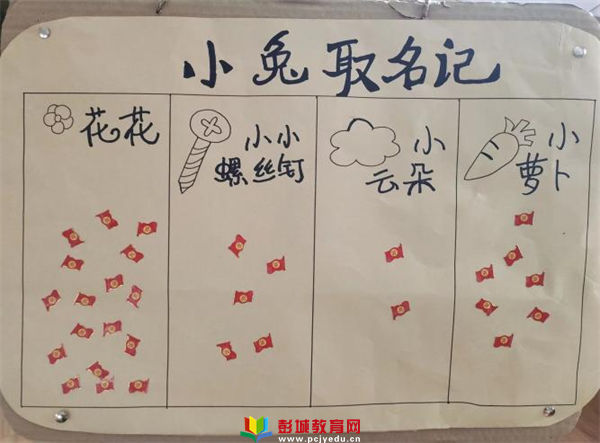 小兔取名记
花花
小小
螺丝钉
小
云朵
小
萝卜
彭城教育网
www.pcjyedu.cn